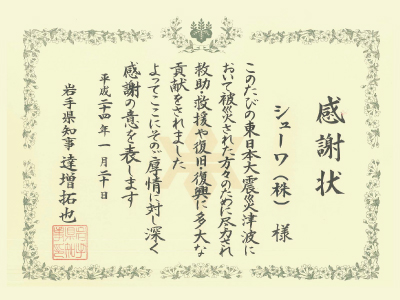 感謝状
シューワ（株）様
このたびの東日本大震災津波に
おいて被災された方々のために尽力され
救助・救援や復旧復興に多大な
貢献をされました
よってここにそのご厚情に対し深く
感謝の意を表します
平成二十四年一月二十日
岩手県知事 達増拓也